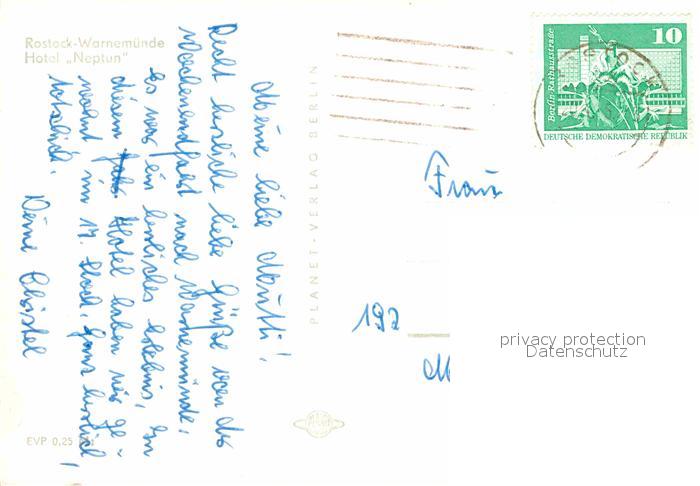 Rostock-Warnemünde
Hotel „Neptun"
Meine liebe Mutti!
Recht herzliche liebe Grüße von der
Wochenendfahrt nach Warnemünde,
Es war ein herrliches Erlebnis, In
diesem Hotel haben wir ge-
wohnt im 17. Stock, ganz herrlich,
Deine Christel
EVP 0,25
PLANET-VERLAG BERLIN
10
Berlin Rathausstraße
DEUTSCHE DEMOKRATISCHE REPUBLIK
Frau
192
M
privacy protection
Datenschutz